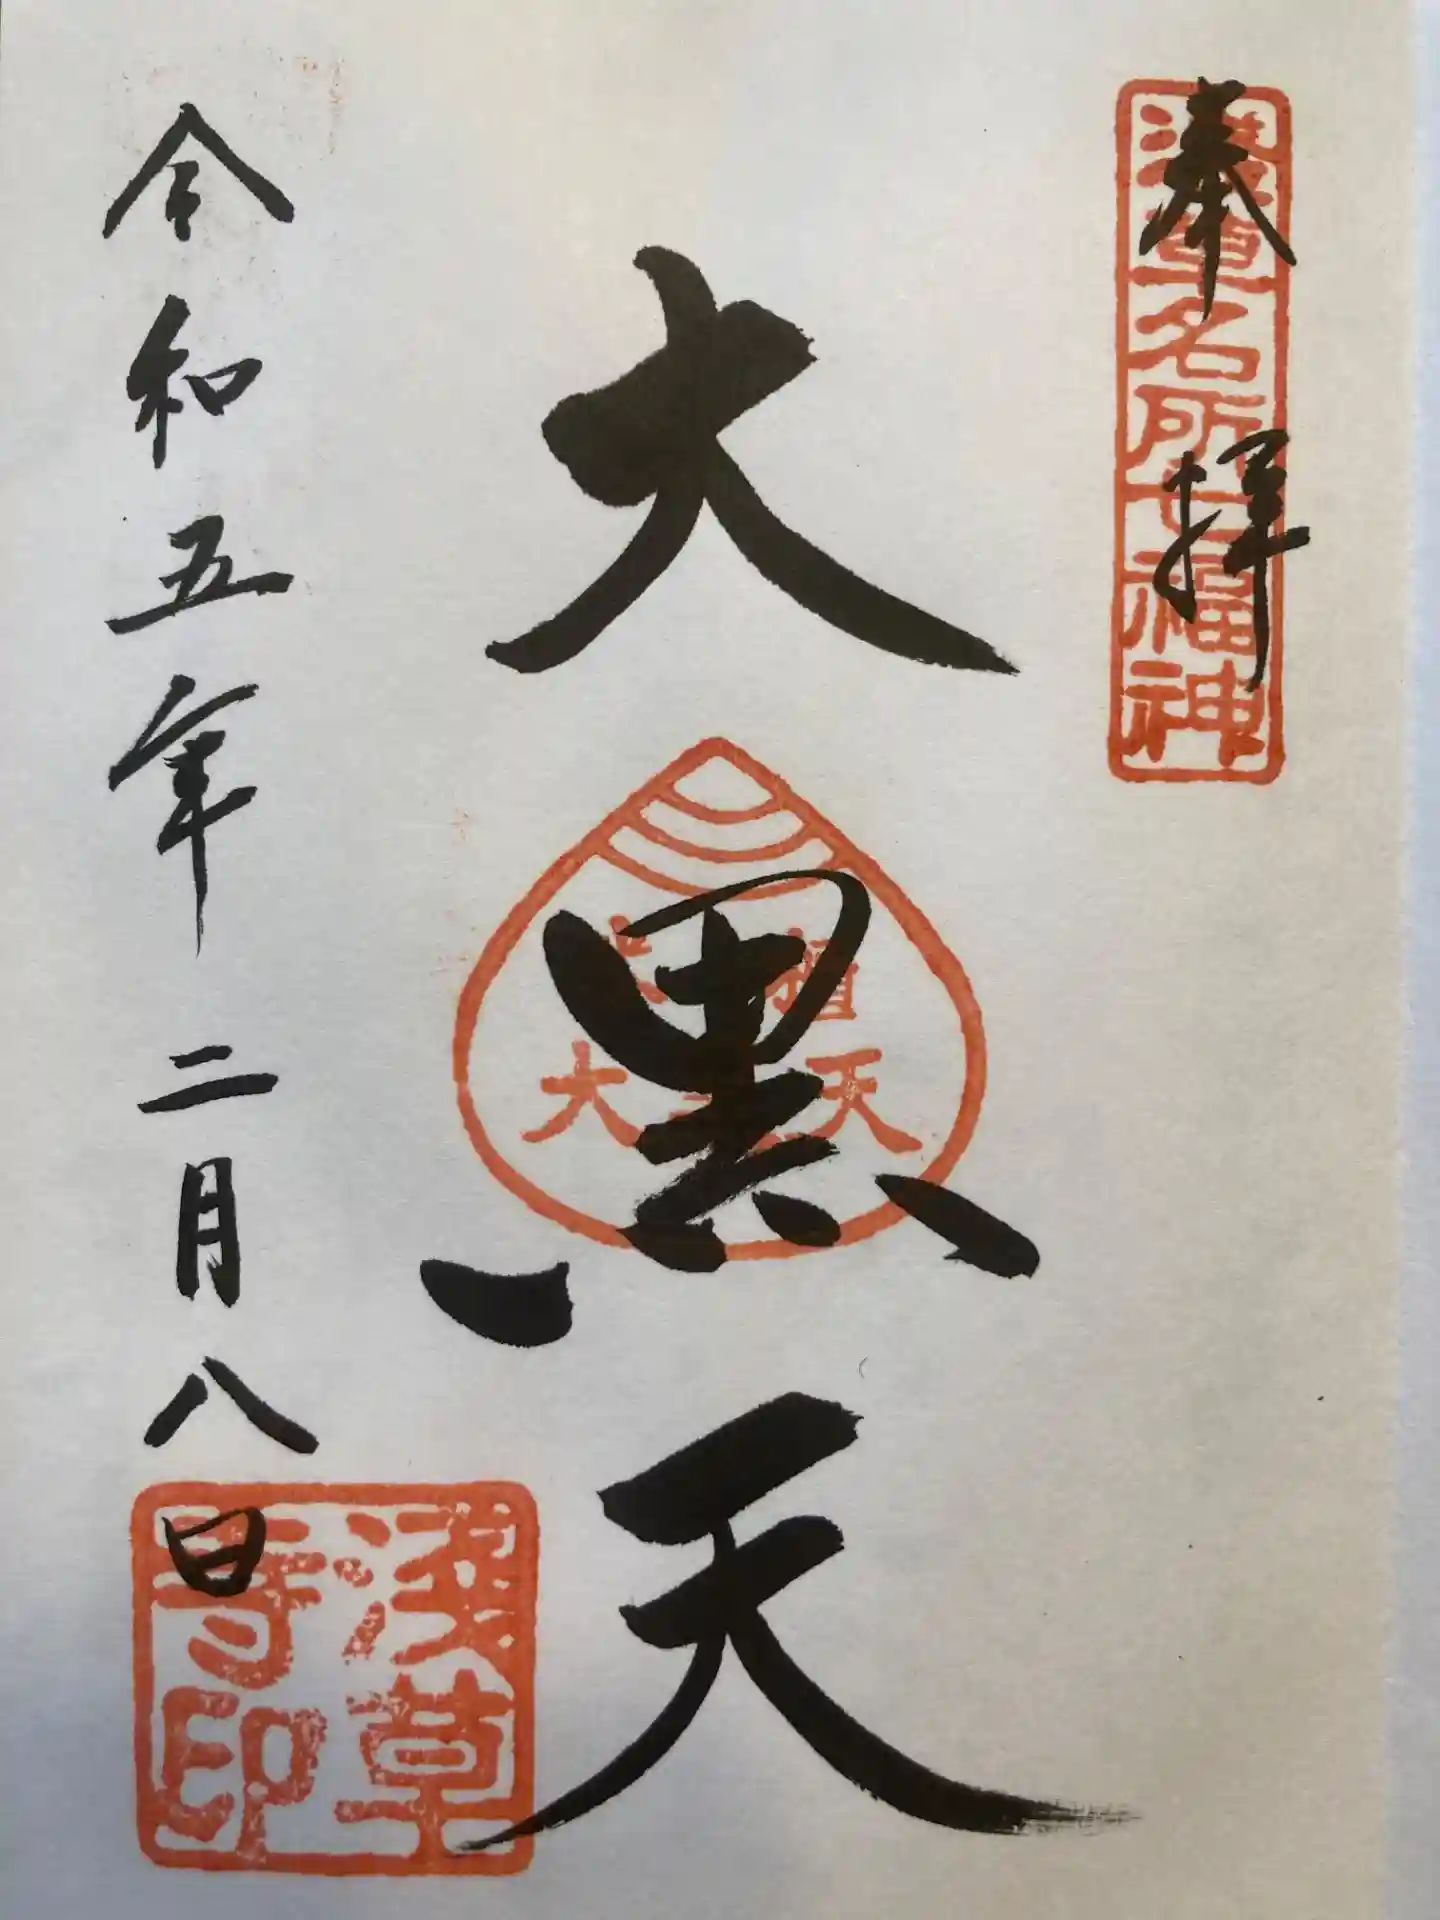 奉拝
浅草名所七福神
大黒天
大黒天
令和五年二月八日
浅草
寺印